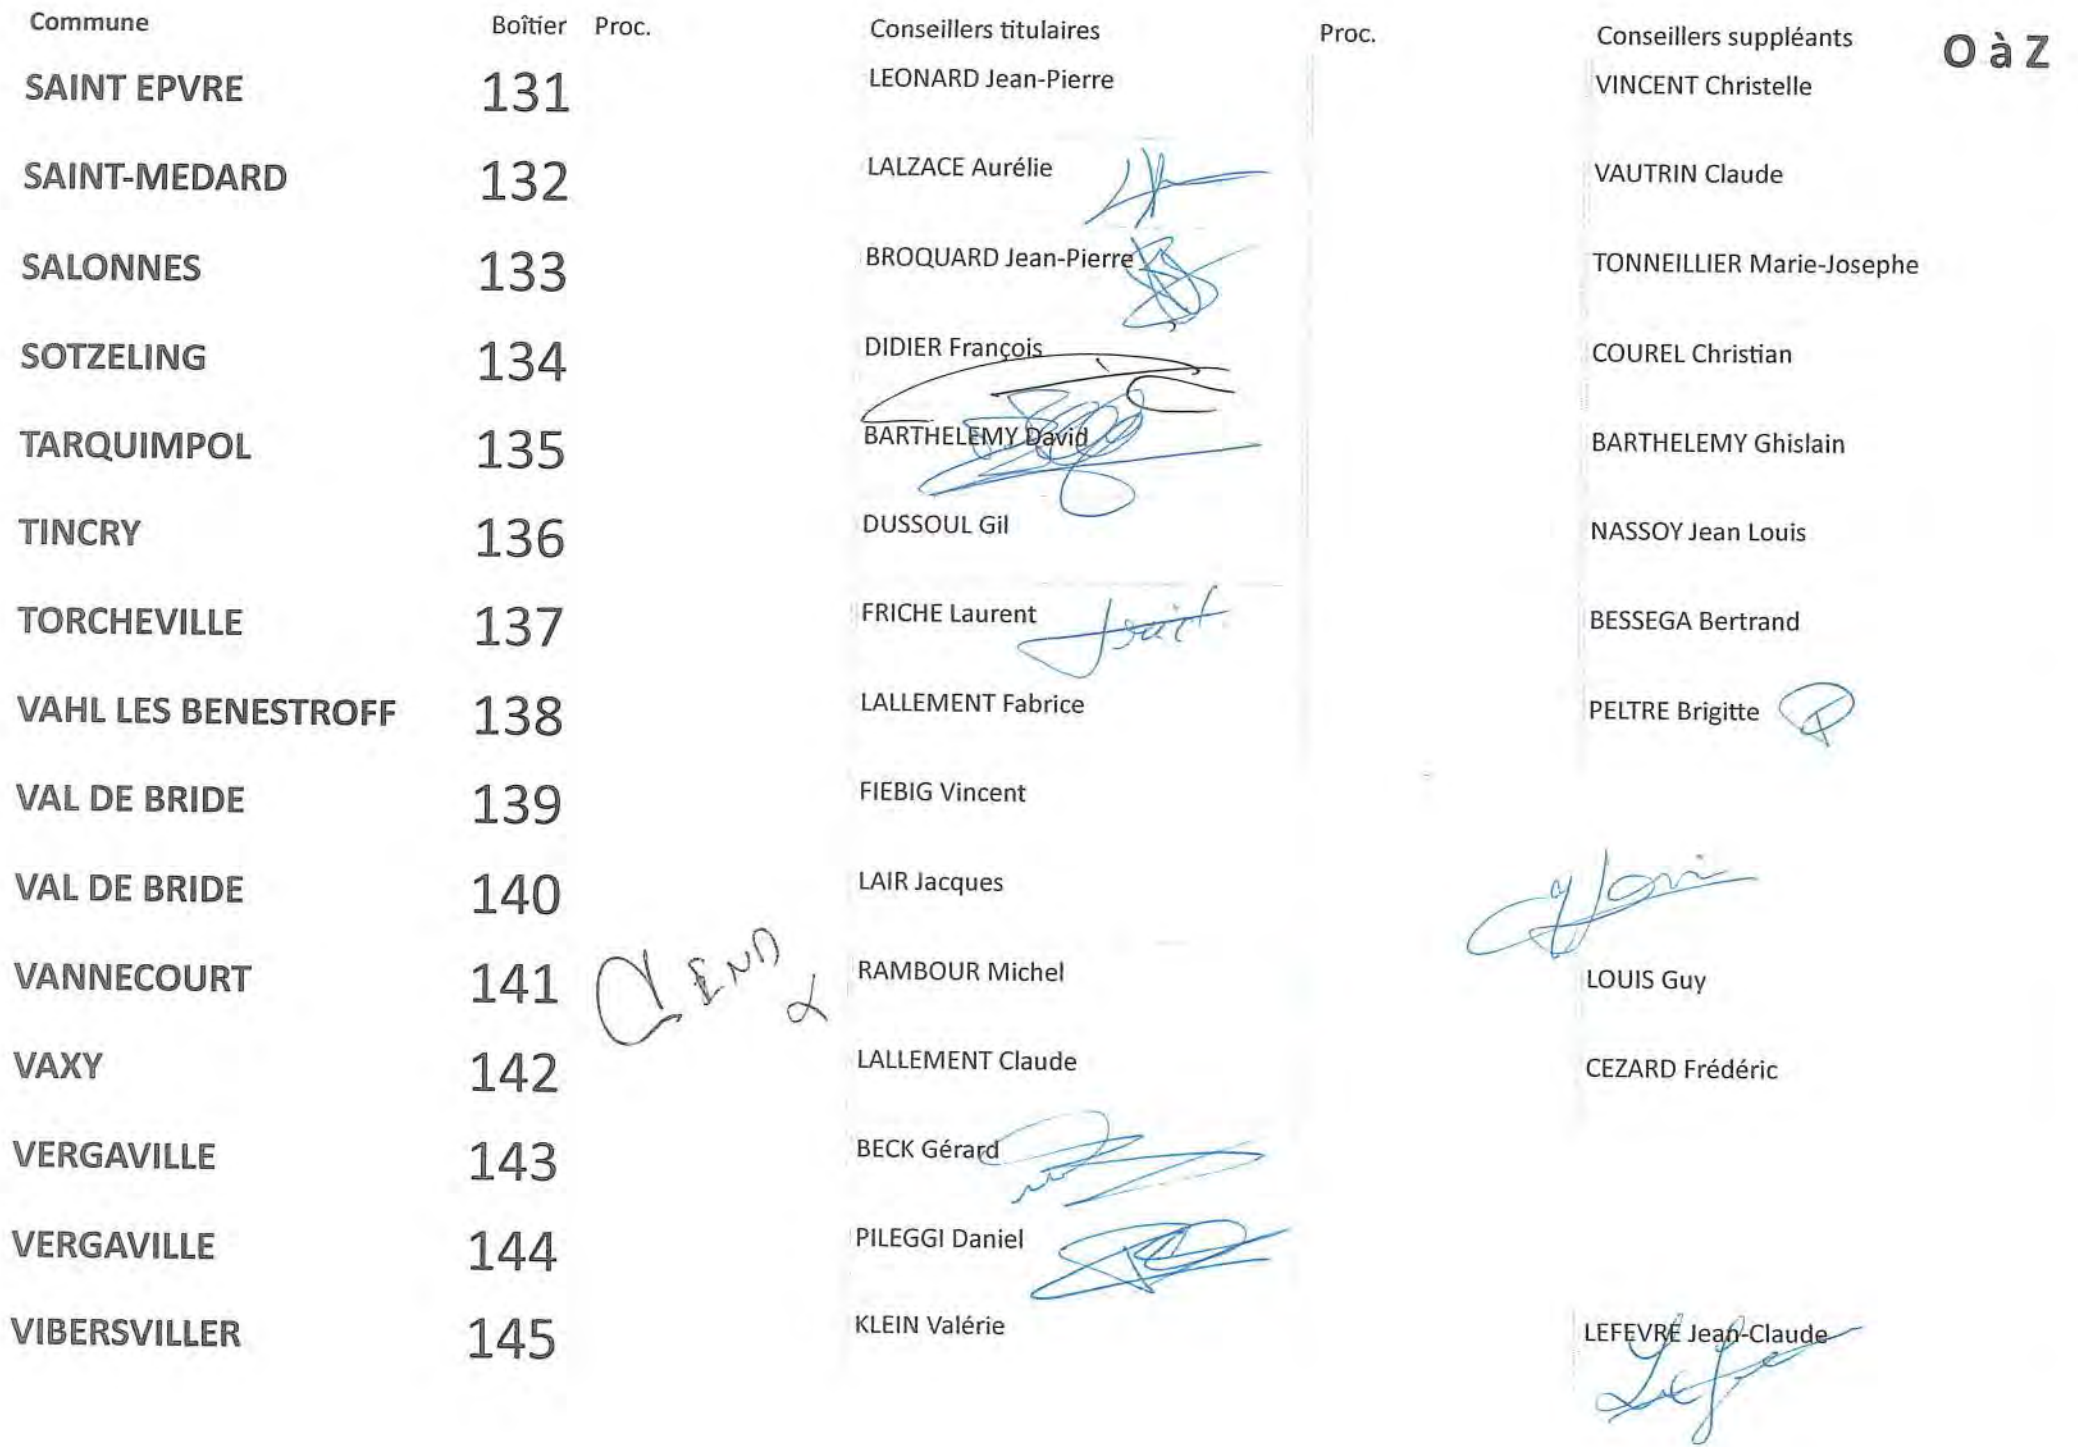 Commune Boîtier Proc. Conseillers titulaires Proc. Conseillers suppléants O à Z
SAINT EPVRE 131 LEONARD Jean-Pierre VINCENT Christelle
SAINT-MEDARD 132 LALZACE Aurélie VAUTRIN Claude
SALONNES 133 BROQUARD Jean-Pierre TONNEILLIER Marie-Josephe
SOTZELING 134 DIDIER François COUREL Christian
TARQUIMPOL 135 BARTHELEMY David BARTHELEMY Ghislain
TINCRY 136 DUSSOUL Gil NASSOY Jean Louis
TORCHEVILLE 137 FRICHE Laurent BESSEGA Bertrand
VAHL LES BENESTROFF 138 LALLEMENT Fabrice PELTRE Brigitte
VAL DE BRIDE 139 FIEBIG Vincent
VAL DE BRIDE 140 LAIR Jacques
VANNECOURT 141 RAMBOUR Michel LOUIS Guy
VAXY 142 LALLEMENT Claude CEZARD Frédéric
VERGAVILLE 143 BECK Gérard
VERGAVILLE 144 PILEGGI Daniel
VIBERSVILLER 145 KLEIN Valérie LEFEVRE Jean-Claude